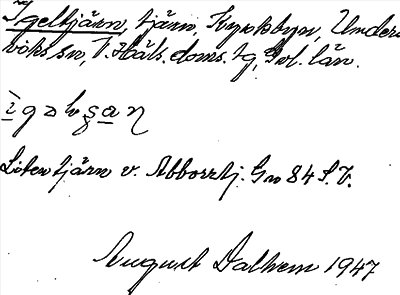 Igeltjärn, tjärn, Kyrkbyn, Unders-
viks sn, V. Häls. doms. tg, Gvl. län.
Liten tjärn v. Abborrtj. Gn 84 S.V.
August Dalhem 1947